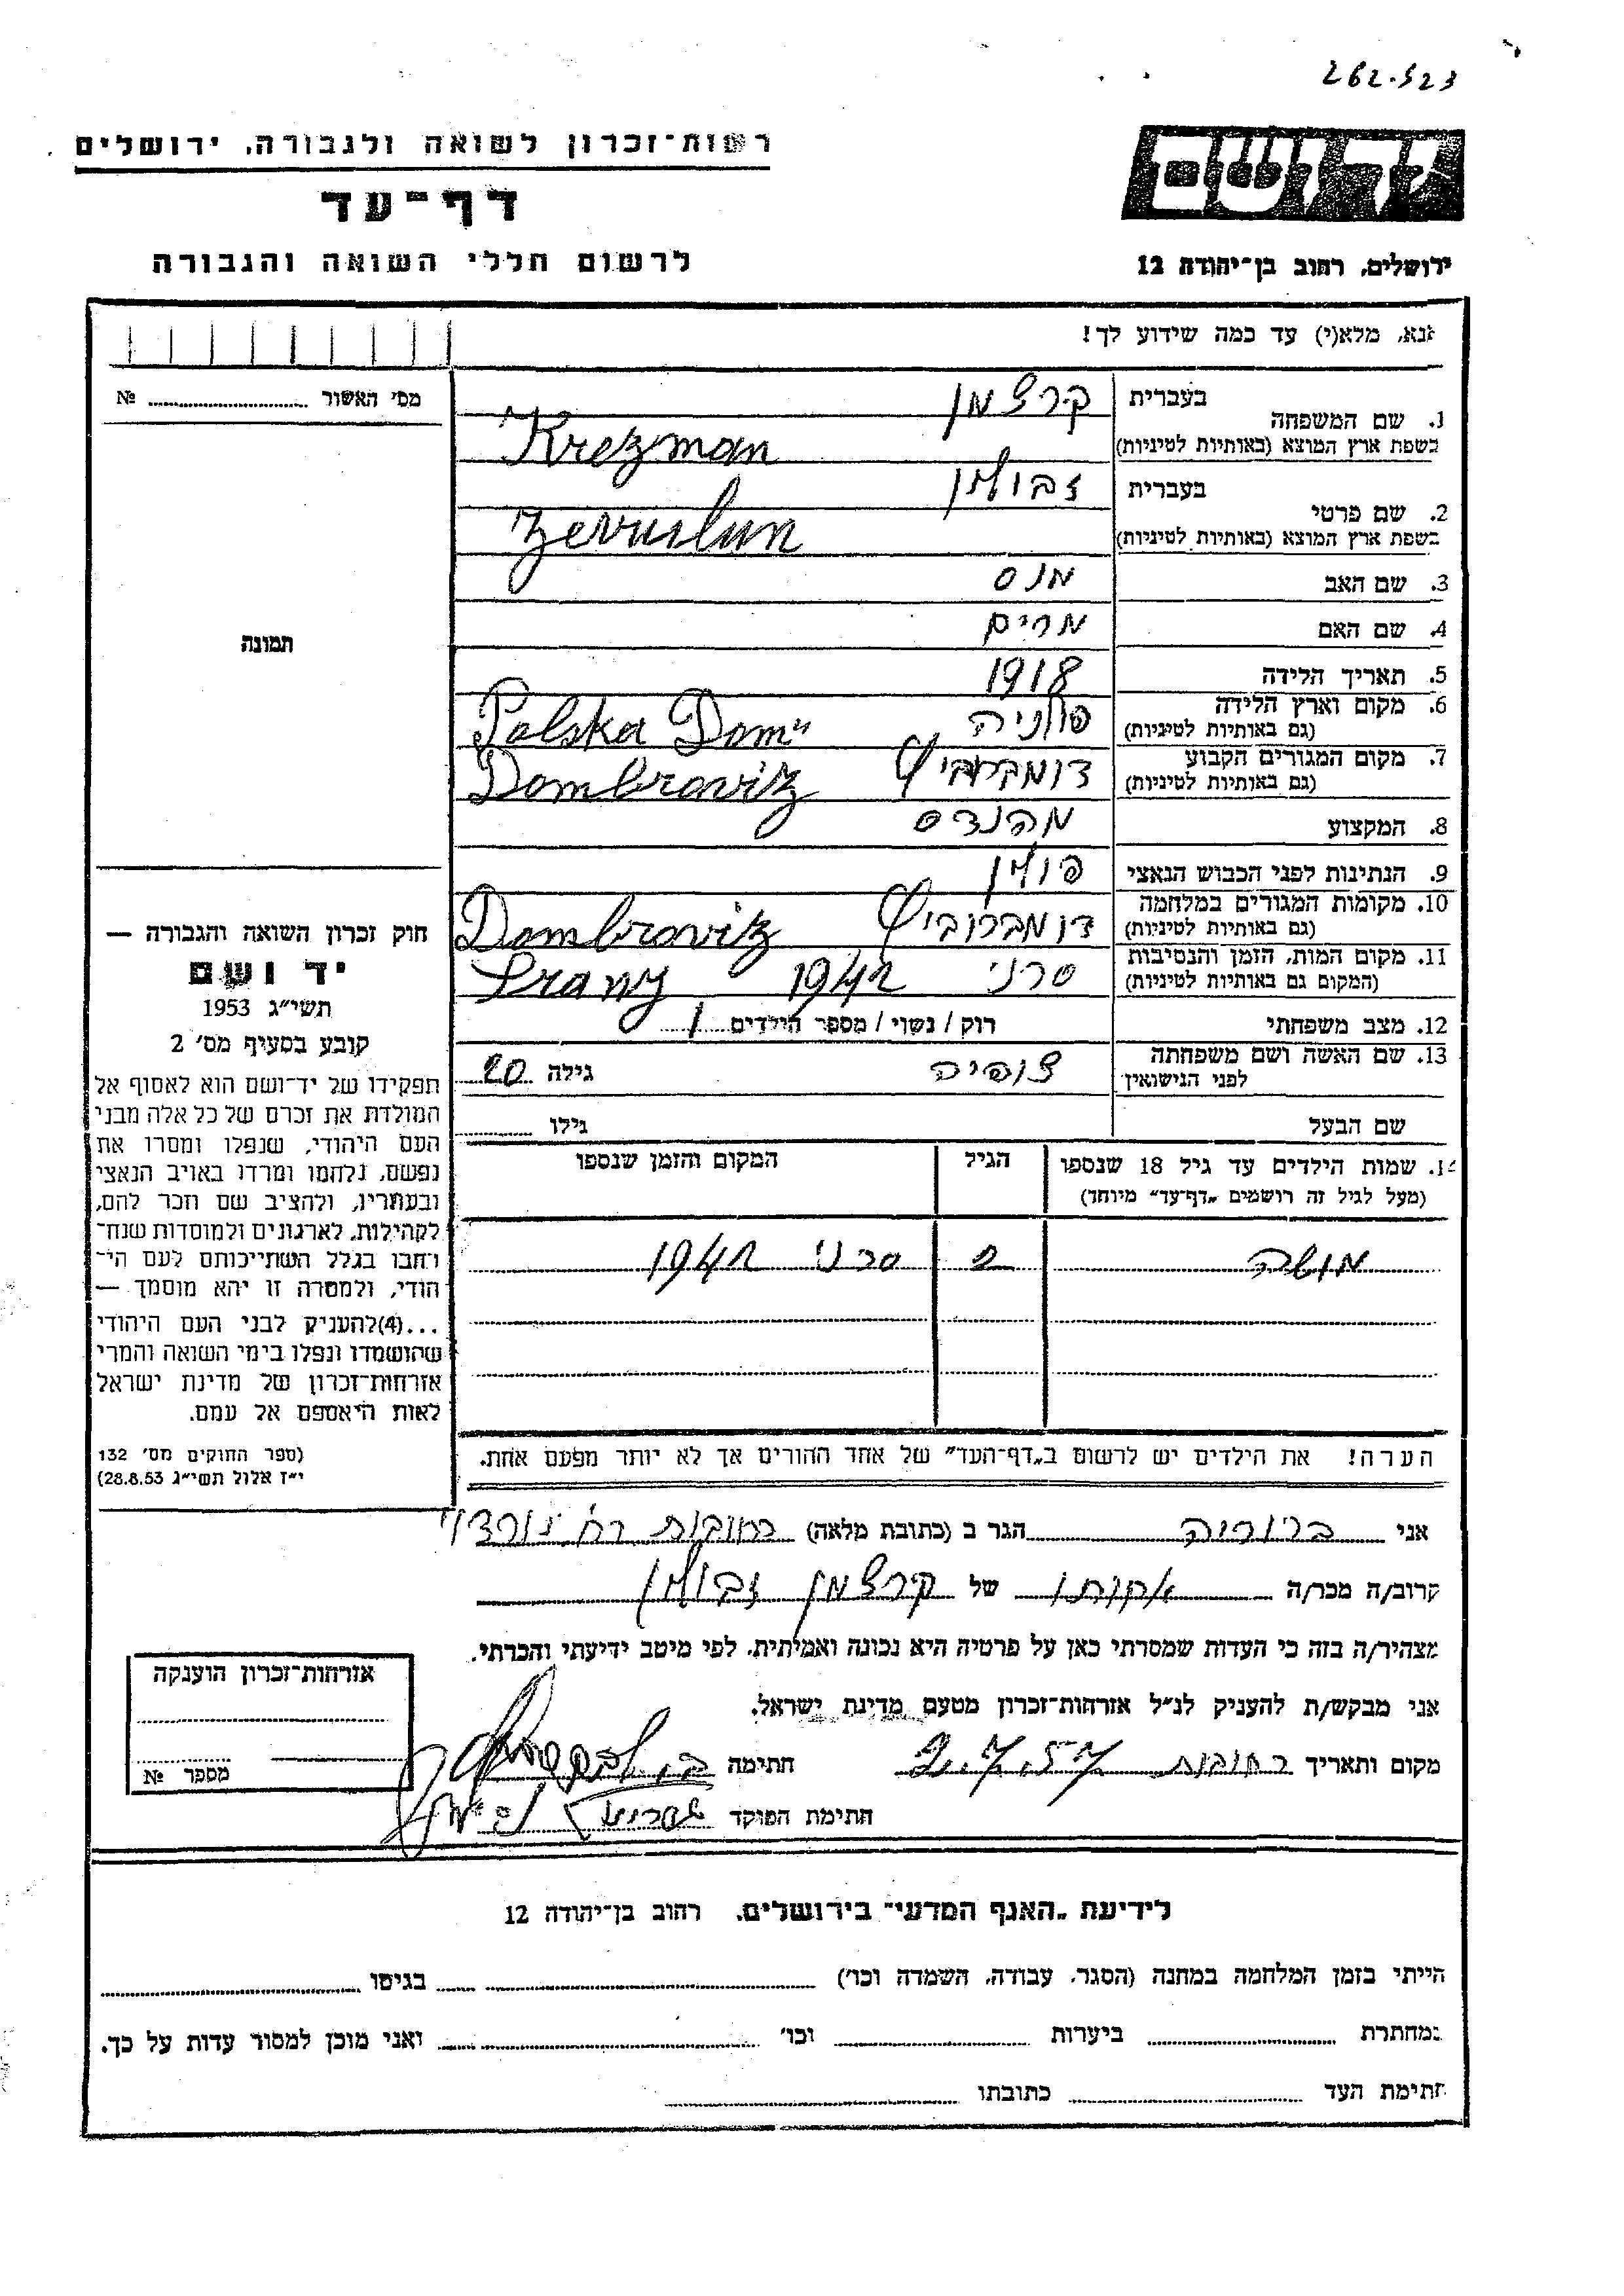 262.523
רשות־זכרון לשואה ולגבורה, ירושלים
דף־עד
לרשום חללי השואה והגבורה
יד ושם
ירושלים, רחוב בן־יהודה 12
אנא, מלא(י) עד כמה שידוע לך!
מס׳ האשור ........ №
תמונה
1. שם המשפחה
בעברית קרצמן
בשפת ארץ המוצא (באותיות לטיניות) Krezman
2. שם פרטי
בעברית זבולון
בשפת ארץ המוצא (באותיות לטיניות) Zevulun
3. שם האב מנס
4. שם האם מרים
5. תאריך הלידה 1918
6. מקום וארץ הלידה פולניה Polska Dom"
(גם באותיות לטיניות)
7. מקום המגורים הקבוע דומברוביץ Dombroviz
(גם באותיות לטיניות)
8. המקצוע מהנדס
9. הנתינות לפני הכבוש הנאצי פולין
10. מקומות המגורים במלחמה דומברוביץ Dombroviz
(גם באותיות לטיניות)
11. מקום המות, הזמן והנסיבות סרני 1942 Srany
(המקום גם באותיות לטיניות)
12. מצב משפחתי רוק / נשוי / מספר הילדים 1
13. שם האשה ושם משפחתה צופיה גילה 20
לפני הנישואין
שם הבעל גילו
14. שמות הילדים עד גיל 18 שנספו הגיל המקום והזמן שנספו
(מעל לגיל זה רושמים „דף־עד״ מיוחד)
מושה 2 סרני 1942
הערה! את הילדים יש לרשום ב„דף־העד״ של אחד ההורים אך לא יותר מפעם אחת.
חוק זכרון השואה והגבורה —
יד ושם
תשי״ג 1953
קובע בסעיף מס׳ 2
תפקידו של יד־ושם הוא לאסוף אל
המולדת את זכרם של כל אלה מבני
העם היהודי, שנפלו ומסרו את
נפשם, נלחמו ומרדו באויב הנאצי
ובעוזריו, ולהציב שם וזכר להם,
לקהילות, לארגונים ולמוסדות שנח־
רחבו בגלל השתייכותם לעם הי־
הודי, ולמטרה זו יהא מוסמך —
...(4)להעניק לבני העם היהודי
שהושמדו ונפלו בימי השואה והמרי
אזרחות־זכרון של מדינת ישראל
לאות היאספם אל עמם.
(ספר החוקים מס׳ 132
י״ז אלול תשי״ג 28.8.53)
אני ברוריה הגר ב (כתובת מלאה) רחובות רח׳
קרוב/ה מכר/ה אחותו של קרצמן זבולון
מצהיר/ה בזה כי העדות שמסרתי כאן על פרטיה היא נכונה ואמיתית, לפי מיטב ידיעתי והכרתי.
אני מבקש/ת להעניק לנ״ל אזרחות־זכרון מטעם מדינת ישראל.
מקום ותאריך רחובות 2.7.57 חתימה
חתימת הפוקד
אזרחות־זכרון הוענקה
מספר №
לידיעת „האגף המדעי״ בירושלים, רחוב בן־יהודה 12
הייתי בזמן המלחמה במחנה (הסגר, עבודה, השמדה וכו׳) ........ בגיטו ........
במחתרת ........ ביערות ........ וכו׳ ........ ואני מוכן למסור עדות על כך.
חתימת העד ........ כתובתו ........